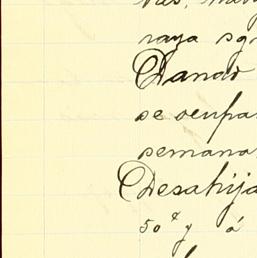 raya
Dando
se ocupa
semana
Desahija
50 y á